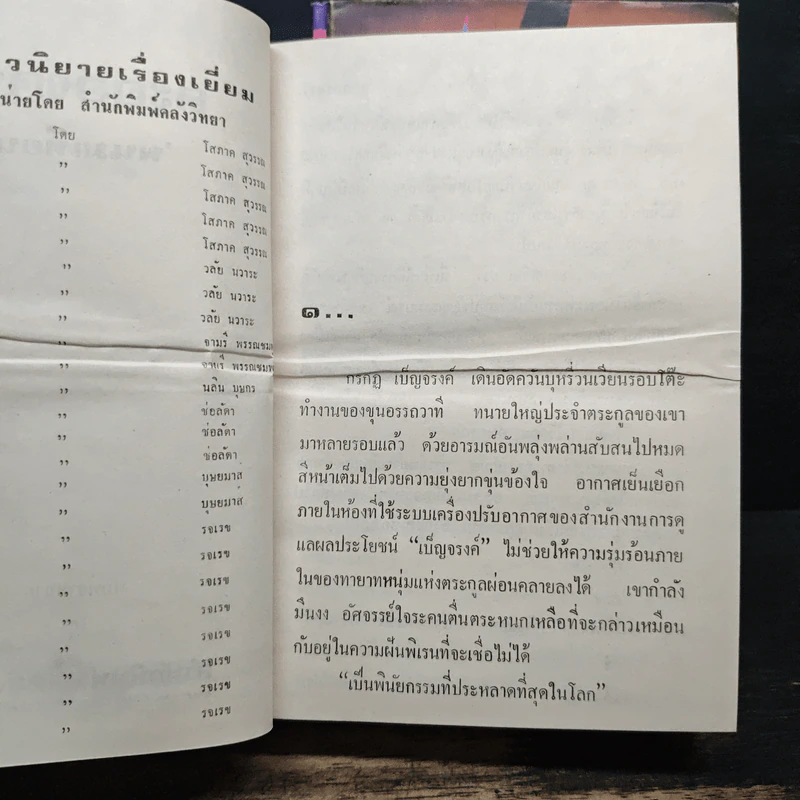 วนิยายเรื่องเยี่ยม
น่ายโดย สำนักพิมพ์คลังวิทยา
โดย โสภาค สุวรรณ
,, โสภาค สุวรรณ
,, โสภาค สุวรรณ
,, โสภาค สุวรรณ
,, โสภาค สุวรรณ
,, วลัย นวาระ
,, วลัย นวาระ
,, วลัย นวาระ
,, จามรี พรรณชมพ
,, จามรี พรรณชมพ
,, นลิน บุษกร
,, ช่อลัดา
,, ช่อลัดา
,, ช่อลัดา
,, บุษยมาส
,, บุษยมาส
,, รจเรข
,, รจเรข
,, รจเรข
,, รจเรข
,, รจเรข
,, รจเรข
,, รจเรข
,, รจเรข
๑...
กรกฏ เบ็ญจรงค์ เดินอัดควันบุหรี่วนเวียนรอบโต๊ะ
ทำงานของขุนอรรถวาที ทนายใหญ่ประจำตระกูลของเขา
มาหลายรอบแล้ว ด้วยอารมณ์อันพลุ่งพล่านสับสนไปหมด
สีหน้าเต็มไปด้วยความยุ่งยากขุ่นข้องใจ อากาศเย็นเยือก
ภายในห้องที่ใช้ระบบเครื่องปรับอากาศของสำนักงานการดู
แลผลประโยชน์ “เบ็ญจรงค์” ไม่ช่วยให้ความรุ่มร้อนภาย
ในของทายาทหนุ่มแห่งตระกูลผ่อนคลายลงได้ เขากำลัง
มึนงง อัศจรรย์ใจระคนตื่นตระหนกเหลือที่จะกล่าวเหมือน
กับอยู่ในความฝันพิเรนที่จะเชื่อไม่ได้
“เป็นพินัยกรรมที่ประหลาดที่สุดในโลก”